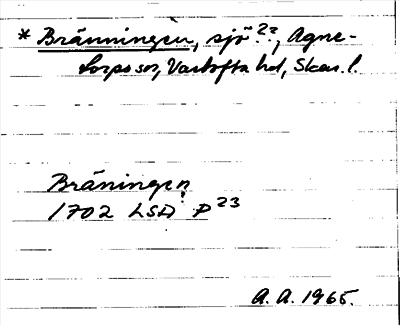 * Bränningen, sjö??, Agne-
torps sn, Vartofta hd, Skar. l.
Bräningen
1702 LSA P23
A. A. 1965.